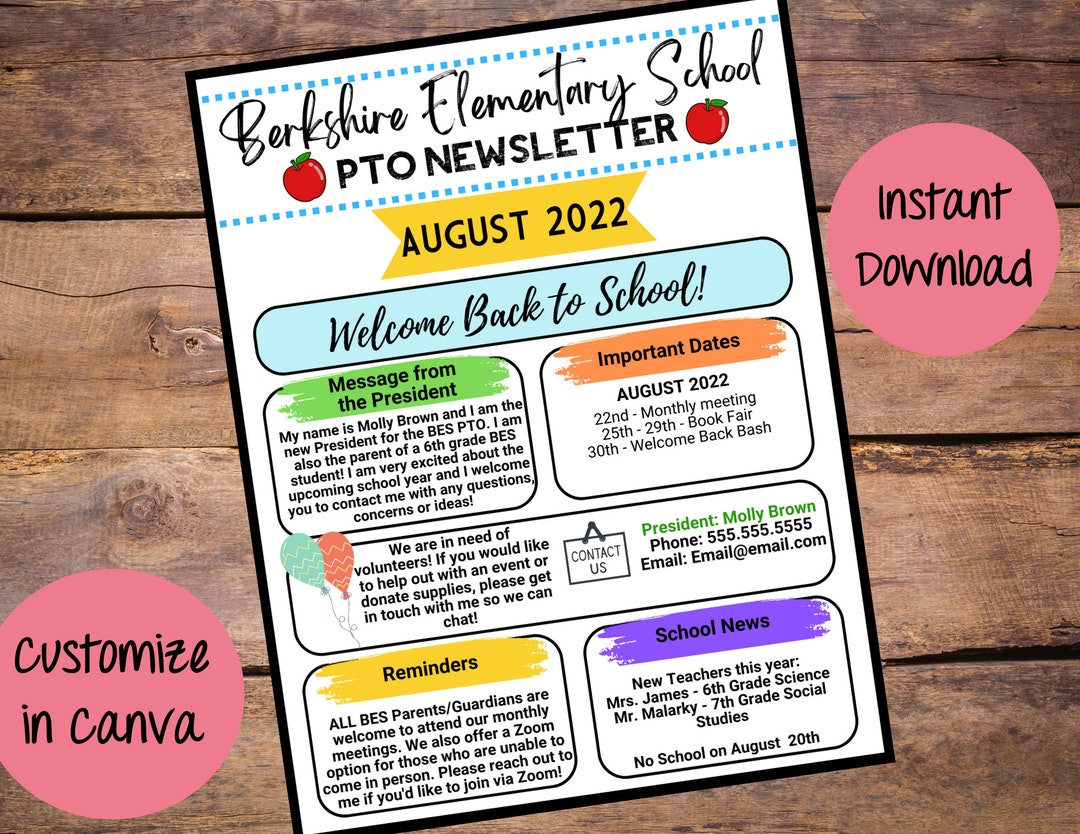 Berkshire Elementary School
PTO NEWSLETTER
AUGUST 2022
Welcome Back to School!
Message from
the President
My name is Molly Brown and I am the
new President for the BES PTO. I am
also the parent of a 6th grade BES
student! I am very excited about the
upcoming school year and I welcome
you to contact me with any questions,
concerns or ideas!
Important Dates
AUGUST 2022
22nd - Monthly meeting
25th - 29th - Book Fair
30th - Welcome Back Bash
We are in need of
volunteers! If you would like
to help out with an event or
donate supplies, please get
in touch with me so we can
chat!
CONTACT
US
President: Molly Brown
Phone: 555.555.5555
Email: Email@email.com
Reminders
ALL BES Parents/Guardians are
welcome to attend our monthly
meetings. We also offer a Zoom
option for those who are unable to
come in person. Please reach out to
me if you'd like to join via Zoom!
School News
New Teachers this year:
Mrs. James - 6th Grade Science
Mr. Malarky - 7th Grade Social
Studies
No School on August 20th
Instant
Download
Customize
in Canva